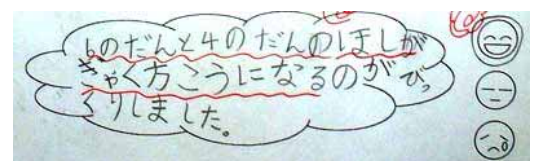 6のだんと4のだんのほしが
ぎゃく方こうになるのがびっ
くりしました。